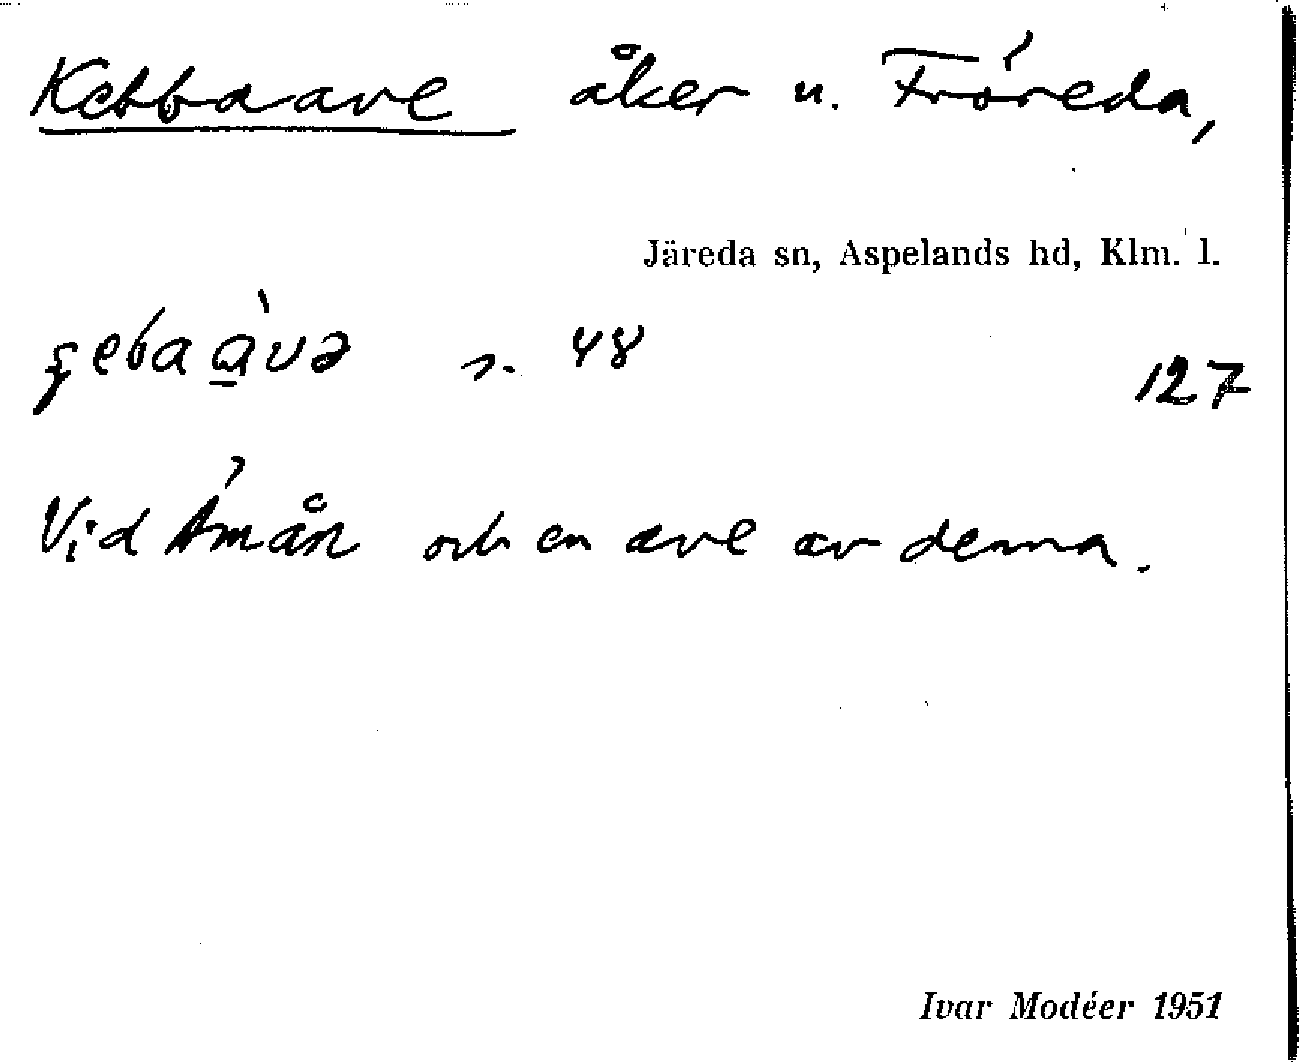 Kebbaave åker u. Fröreda,
Järeda sn, Aspelands hd, Klm. l.
s. 48
127
Vid Åmån och en ave av denna.
Ivar Modéer 1951